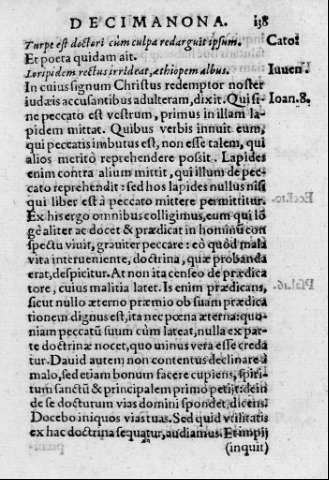 DECIMANONA. 138
Turpe est doctori cùm culpa redarguit ipsum. Cato.
Et poeta quidam ait.
Loripidem rectus irrideat, æthiopem albus. Iuuen.
In cuius signum Christus redemptor noster
iudæis accusantibus adulteram, dixit. Qui si- Ioan.8.
ne peccato est vestrum, primus in illam la-
pidem mittat. Quibus verbis innuit eum,
qui peccatis imbutus est, non esse talem, qui
alios meritò reprehendere possit. Lapides
enim contra alium mittit, qui illum de pec-
cato reprehendit: sed hos lapides nullus nisi
qui liber est à peccato mittere permittitur.
Ex his ergo omnibus colligimus, eum qui lõ
gè aliter ac docet & prædicat in hominũ con
spectu viuit, grauiter peccare: eò quòd mala
vita interueniente, doctrina, quæ probanda
erat, despicitur. At non ita censeo de prædica
tore, cuius malitia latet. Is enim prædicans,
sicut nullo æterno præmio ob suam prædica-
tionem dignus est, ita nec pœna æterna: quo-
niam peccatũ suum cùm lateat, nulla ex par-
te doctrinæ nocet, quo minus vera esse creda
tur. Dauid autem non contentus declinare à
malo, sed etiam bonum facere cupiens, spiri-
tum sanctũ & principalem primo petijt: dein
de se docturum vias domini spondet, dicens.
Docebo iniquos vias tuas. Sed quid vtilitatis
ex hac doctrina sequatur, audiamus. Et impij
(inquit)